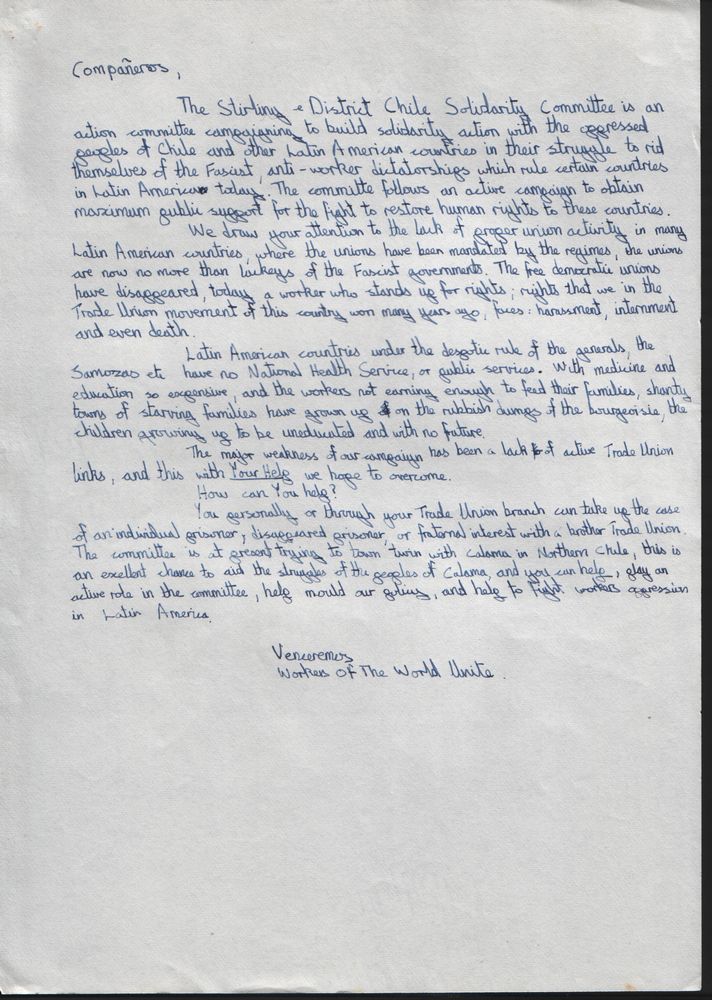 Compañeros,
The Stirling & District Chile Solidarity Committee is an
action committee campaigning to build solidarity action with the oppressed
peoples of Chile and other Latin American countries in their struggle to rid
themselves of the Fascist, anti-worker dictatorships which rule certain countries
in Latin America today. The committe follows an active campaign to obtain
maximum public support for the fight to restore human rights to these countries.
We draw your attention to the lack of proper union activity in many
Latin American countries, where the unions have been mandated by the regimes, the unions
are now no more than lackeys of the Fascist governments. The free democratic unions
have disappeared, today a worker who stands up for rights; rights that we in the
Trade Union movement of this country won many years ago, faces: harassment, internment
and even death.
Latin American countries under the despotic rule of the generals, the
Samozas etc have no National Health Service, or public services. With medicine and
education so expensive, and the workers not earning enough to feed their families, shanty
towns of starving families have grown up on the rubbish dumps of the bourgeoisie, the
children growing up to be uneducated and with no future.
The major weakness of our campaign has been a lack of active Trade Union
links, and this with Your Help we hope to overcome.
How can You help?
You personally or through your Trade Union branch can take up the case
of an individual prisoner, disappeared prisoner, or fraternal interest with a brother Trade Union.
The committee is at present trying to town 'twin with Calama in Northern Chile, this is
an excellent chance to aid the struggles of the peoples of Calama, and you can help, play an
active role in the committee, help mould our policy, and help to fight workers oppression
in Latin America.
Venceremos
Workers Of The World Unite.